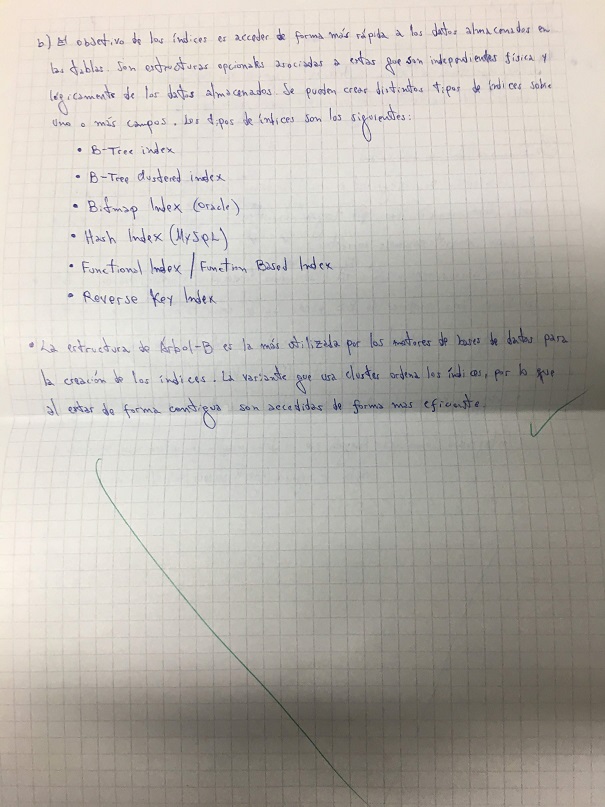 b) El objetivo de los índices es acceder de forma más rápida a los datos almacenados en
las tablas. Son estructuras opcionales asociadas a estas que son independientes física y
lógicamente de los datos almacenados. Se pueden crear distintos tipos de índices sobre
uno o más campos. Los tipos de índices son los siguientes:
• B-Tree index
• B-Tree clustered index
• Bitmap Index (Oracle)
• Hash Index (MySQL)
• Functional Index / Function Based Index
• Reverse Key Index
• La estructura de Árbol-B es la más utilizada por los motores de bases de datos para
la creación de los índices. La variante que usa cluster ordena los índices, por lo que
al estar de forma contigua son accedidas de forma mas eficiente.